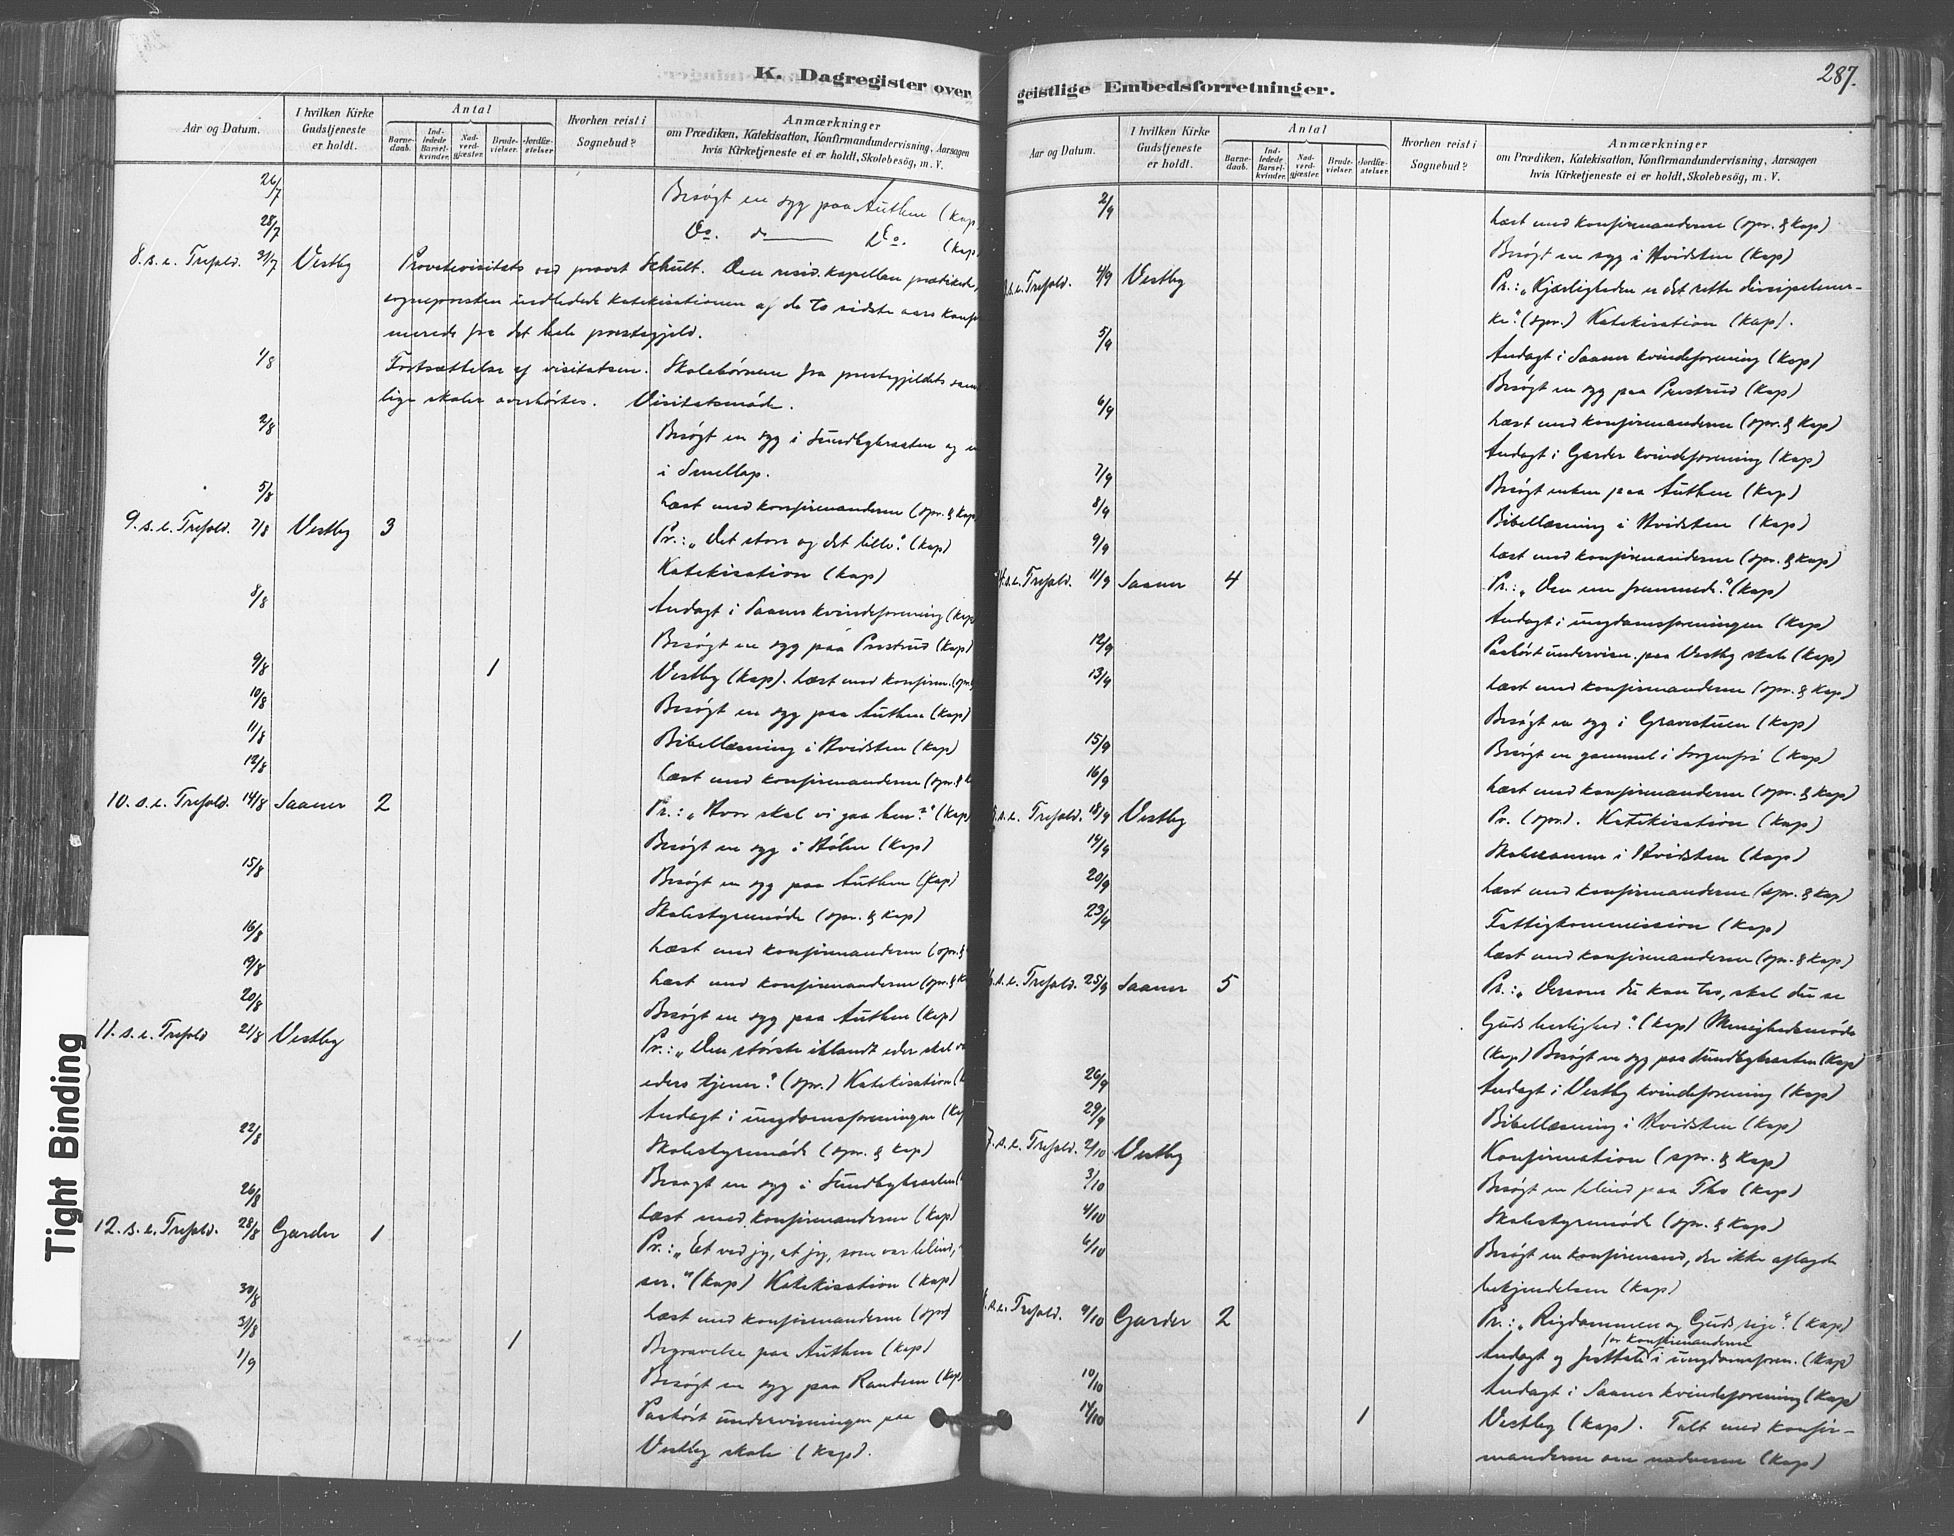 K. Dagregister over
Aar og Datum.
I hvilken Kirke
Gudstjeneste
er holdt.
Antal
Barne-
daab.
Ind-
ledede
Barsel-
kvinder.
Nad-
verd-
gjæster.
Brude-
vielser.
Jordfæ-
stelser
Hvorhen reist i
Sognebud?
Anmærkninger
om Prædiken, Katekisation, Konfirmandundervisning, Aarsagen
hvis Kirketjeneste ei er holdt, Skolebesøg, m. V.
26/7 Besøgt en syg paa Authen (kap
28/7 Do. do Do. (kap
8. s. e. Trefold. 31/7 Vestby Provstevisitats ved provst Schult. Den resid. kapellan prædikede,
sognepresten indledede katekisationen af de to sidste aars konfir
merede fra det hele prestegjeld.
1/8 Fortsættelse af visitatsen. Skolebørnene fra prestegjeldets sam
lige skoler overhørtes. Visitatsmøde.
2/8 Besøgt en syg i Sundbybraaten og en
i Smellap.
5/8 Læst med konfirmanderne (spr. & kap
9. s. e. Trefold. 7/8 Vestby 3 Pr.: „Det store og det lille." (kap)
Katekisation (kap)
8/8 Andagt i Saaner kvindeforening (kap
Besøgt en syg paa Prestrud (kap)
9/8 1 Vestby (kap). Læst med konfirm. (spr.
10/8 Besøgt en syg paa Authen (kap)
11/8 Bibellæsning i Hvidsten (kap)
12/8 Læst med konfirmanderne (spr. &
10. s. e. Trefold. 14/8 Saaner 2 Pr.: „Hvor skal vi gaa hen?" (kap)
Besøgt en syg i Hølen (kap)
15/8 Besøgt en syg paa Authen (kap)
Skolestyremøde (spr. & kap)
16/8 Læst med konfirmanderne (spr. &
19/8 Læst med konfirmanderne (spr. & ka
20/8 Besøgt en syg paa Authen (kap)
11. s. e. Trefold 21/8 Vestby Pr.: „Den største iblandt eder skal v
eders tjener." (spr.) Katekisation (
Andagt i ungdomsforeningen (kap
22/8 Skolestyremøde (spr. & kap)
Besøgt en syg i Sundbybraaten (
26/8 Læst med konfirmanderne (kap)
12. s. e. Trefold. 28/8 Garder 1 Pr.: „Et ved jeg, at jeg, som var blind,
ser." (kap) Katekisation (kap)
30/8 Læst med konfirmanderne (spr)
31/8 1 Begravelse paa Authen (kap)
1/9 Besøgt en syg paa Randem (kap)
Paahørt undervisningen paa
Vestby skole (kap).
287.
geistlige Embedsforretninger.
Aar og Datum.
I hvilken Kirke
Gudstjeneste
er holdt.
Antal
Barne-
daab.
Ind-
ledede
Barsel-
kvinder.
Nad-
verd-
gjæster.
Brude-
vielser.
Jordfæ-
stelser.
Hvorhen reist i
Sognebud?
Anmærkninger
om Prædiken, Katekisation, Konfirmandundervisning, Aarsagen
hvis Kirketjeneste ei er holdt, Skolebesøg, m. V.
2/9 Læst med konfirmanderne (spr. & kap)
Besøgt en syg i Hvidsten (kap)
s. e. Trefold. 4/9 Vestby Pr.: „Kjærligheden er det rette discipelmer-
ke." (spr.) Katekisation (kap).
5/9 Andagt i Saaner kvindeforening (kap)
Besøgt en syg paa Prestrud (kap)
6/9 Læst med konfirmanderne (spr. & kap)
Andagt i Garder kvindeforening (kap)
7/9 Besøgt enken paa Authen (kap)
8/9 Bibellæsning i Hvidsten (kap)
9/9 Læst med konfirmanderne (spr. & kap)
4. s. e. Trefold. 11/9 Saaner 4 Pr.: „Den ene fremmede." (kap)
Andagt i ungdomsforeningen (kap)
12/9 Paahørt undervisn. paa Vestby skole (kap)
13/9 Læst med konfirmanderne (spr. & kap)
Besøgt en syg i Gravestuen (kap)
15/9 Besøgt en gammel i Sorgenfri (kap)
16/9 Læst med konfirmanderne (spr. & kap)
s. e. Trefold. 18/9 Vestby Pr. (spr.). Katekisation (kap)
19/9 Skoleexamen i Hvidsten (kap)
20/9 Læst med konfirmanderne (spr. & kap)
23/9 Fattigkommission (kap)
Læst med konfirmanderne (spr. & kap)
s. e. Trefold. 25/9 Saaner 5 Pr.: „Dersom du kan tro, skal du se
Guds herlighed." (kap) Menighedsmøde
(kap) Besøgt en syg paa Sundbybraaten (kap)
26/9 Andagt i Vestby kvindeforening (kap)
29/9 Bibellæsning i Hvidsten (kap)
7. s. e. Trefold. 2/10 Vestby Konfirmation (spr. & kap)
3/10 Besøgt en blind paa Tho (kap)
4/10 Skolestyremøde (spr. & kap)
6/10 Besøgt en konfirmand, der ikke aflagde
bekjendelsen (kap)
s. e. Trefold. 9/10 Garder 2 Pr.: „Rigdommen og Guds rige." (kap)
for konfirmanderne
Andagt og festtale i ungdomsforen. (kap)
10/10 Andagt i Saaner kvindeforening (kap)
14/10 1 Vestby (kap). Talt med konfir-
manderne om nadveren (kap)
Tight Binding